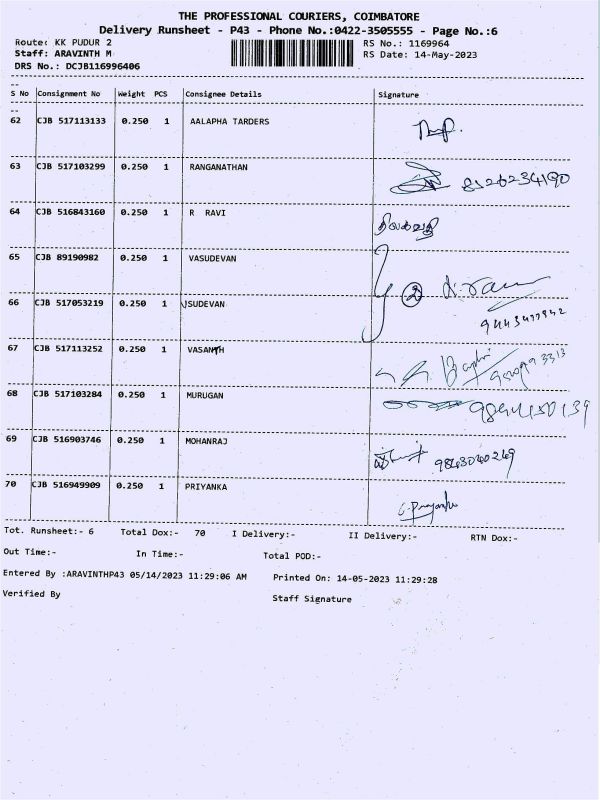 THE PROFESSIONAL COURIERS, COIMBATORE
Delivery Runsheet - P43 - Phone No.:0422-3505555 - Page No.:6
Route: KK PUDUR 2 RS No.: 1169964
Staff: ARAVINTH M RS Date: 14-May-2023
DRS No.: DCJB116996406
S No Consignment No Weight PCS Consignee Details Signature
62 CJB 517113133 0.250 1 AALAPHA TARDERS
63 CJB 517103299 0.250 1 RANGANATHAN 8126234190
64 CJB 516843160 0.250 1 R RAVI திலகவதி
65 CJB 89190982 0.250 1 VASUDEVAN
66 CJB 517053219 0.250 1 VSUDEVAN 2
67 CJB 517113252 0.250 1 VASANTH
68 CJB 517103284 0.250 1 MURUGAN
69 CJB 516903746 0.250 1 MOHANRAJ 9843040249
70 CJB 516949909 0.250 1 PRIYANKA C. Priyanka
Tot. Runsheet:- 6 Total Dox:- 70 I Delivery:- II Delivery:- RTN Dox:-
Out Time:- In Time:- Total POD:-
Entered By :ARAVINTHP43 05/14/2023 11:29:06 AM Printed On: 14-05-2023 11:29:28
Verified By Staff Signature